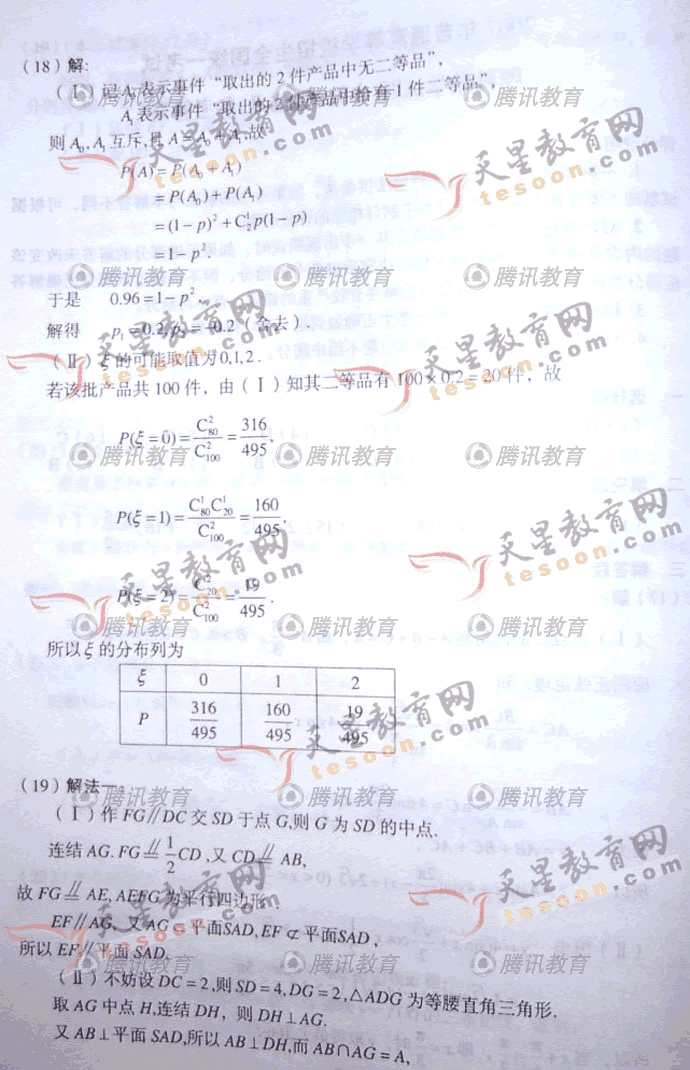 (18) 解:
(Ⅰ) 记A₀表示事件“取出的2件产品中无二等品”,
A₁表示事件“取出的2件产品中恰有1件二等品”,
则A₀,A₁互斥,且A=A₀+A₁,故
P(A)=P(A₀+A₁)
=P(A₀)+P(A₁)
=(1-p)²+C¹₂p(1-p)
=1-p².
于是 0.96=1-p²,
解得 p₁=0.2,p₂=-0.2 (舍去).
(Ⅱ) ξ的可能取值为0,1,2.
若该批产品共100件, 由(Ⅰ)知其二等品有100×0.2=20件, 故
P(ξ=0)=C²₈₀/C²₁₀₀=316/495,
P(ξ=1)=C¹₈₀C¹₂₀/C²₁₀₀=160/495,
P(ξ=2)=C²₂₀/C²₁₀₀=19/495.
所以ξ的分布列为
ξ 0 1 2
P 316/495 160/495 19/495
(19) 解法一:
(Ⅰ) 作FG∥DC交SD于点G,则G为SD的中点.
连结AG.FG∥= 1/2 CD,又CD∥= AB,
故FG∥= AE, AEFG为平行四边形.
EF∥AG, 又AG⊂平面SAD,EF⊄平面SAD,
所以EF∥平面SAD.
(Ⅱ) 不妨设DC=2,则SD=4,DG=2,△ADG为等腰直角三角形.
取AG中点H,连结DH, 则DH⊥AG.
又AB⊥平面SAD,所以AB⊥DH,而AB∩AG=A,
腾讯教育
天星教育网
tesoon.com